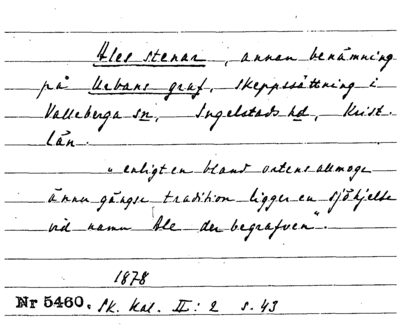 Ales stenar, annan benämning
på Urbans graf, skeppssättning i
Valleberga sn, Ingelstads hd, Krist.
län.
"enligt en bland ortens allmoge
ännu gängse tradition ligger en sjöhjelte
vid namn Ale der begrafven".
1878
Nr 5460. Sk. Kal. II: 2 s. 43